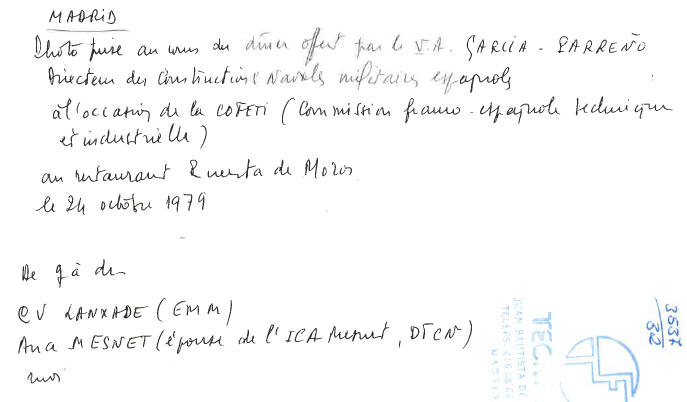 MADRID
Photo prise au cours du dîner offert par le V.A. GARCIA-PARREÑO
Directeur des Constructions Navales militaires espagnols
à l'occasion de la COFETI (Commission franco-espagnole technique
et industrielle)
au restaurant de Moros
le 24 octobre 1979
De g à dr
CV LANXADE (EMM)
Ana MESNET (épouse de l'ICA Mesnet, DTCN)
moi
TEC
JUAN BAUTISTA DE
TELEFS.
MADRID
3537
32